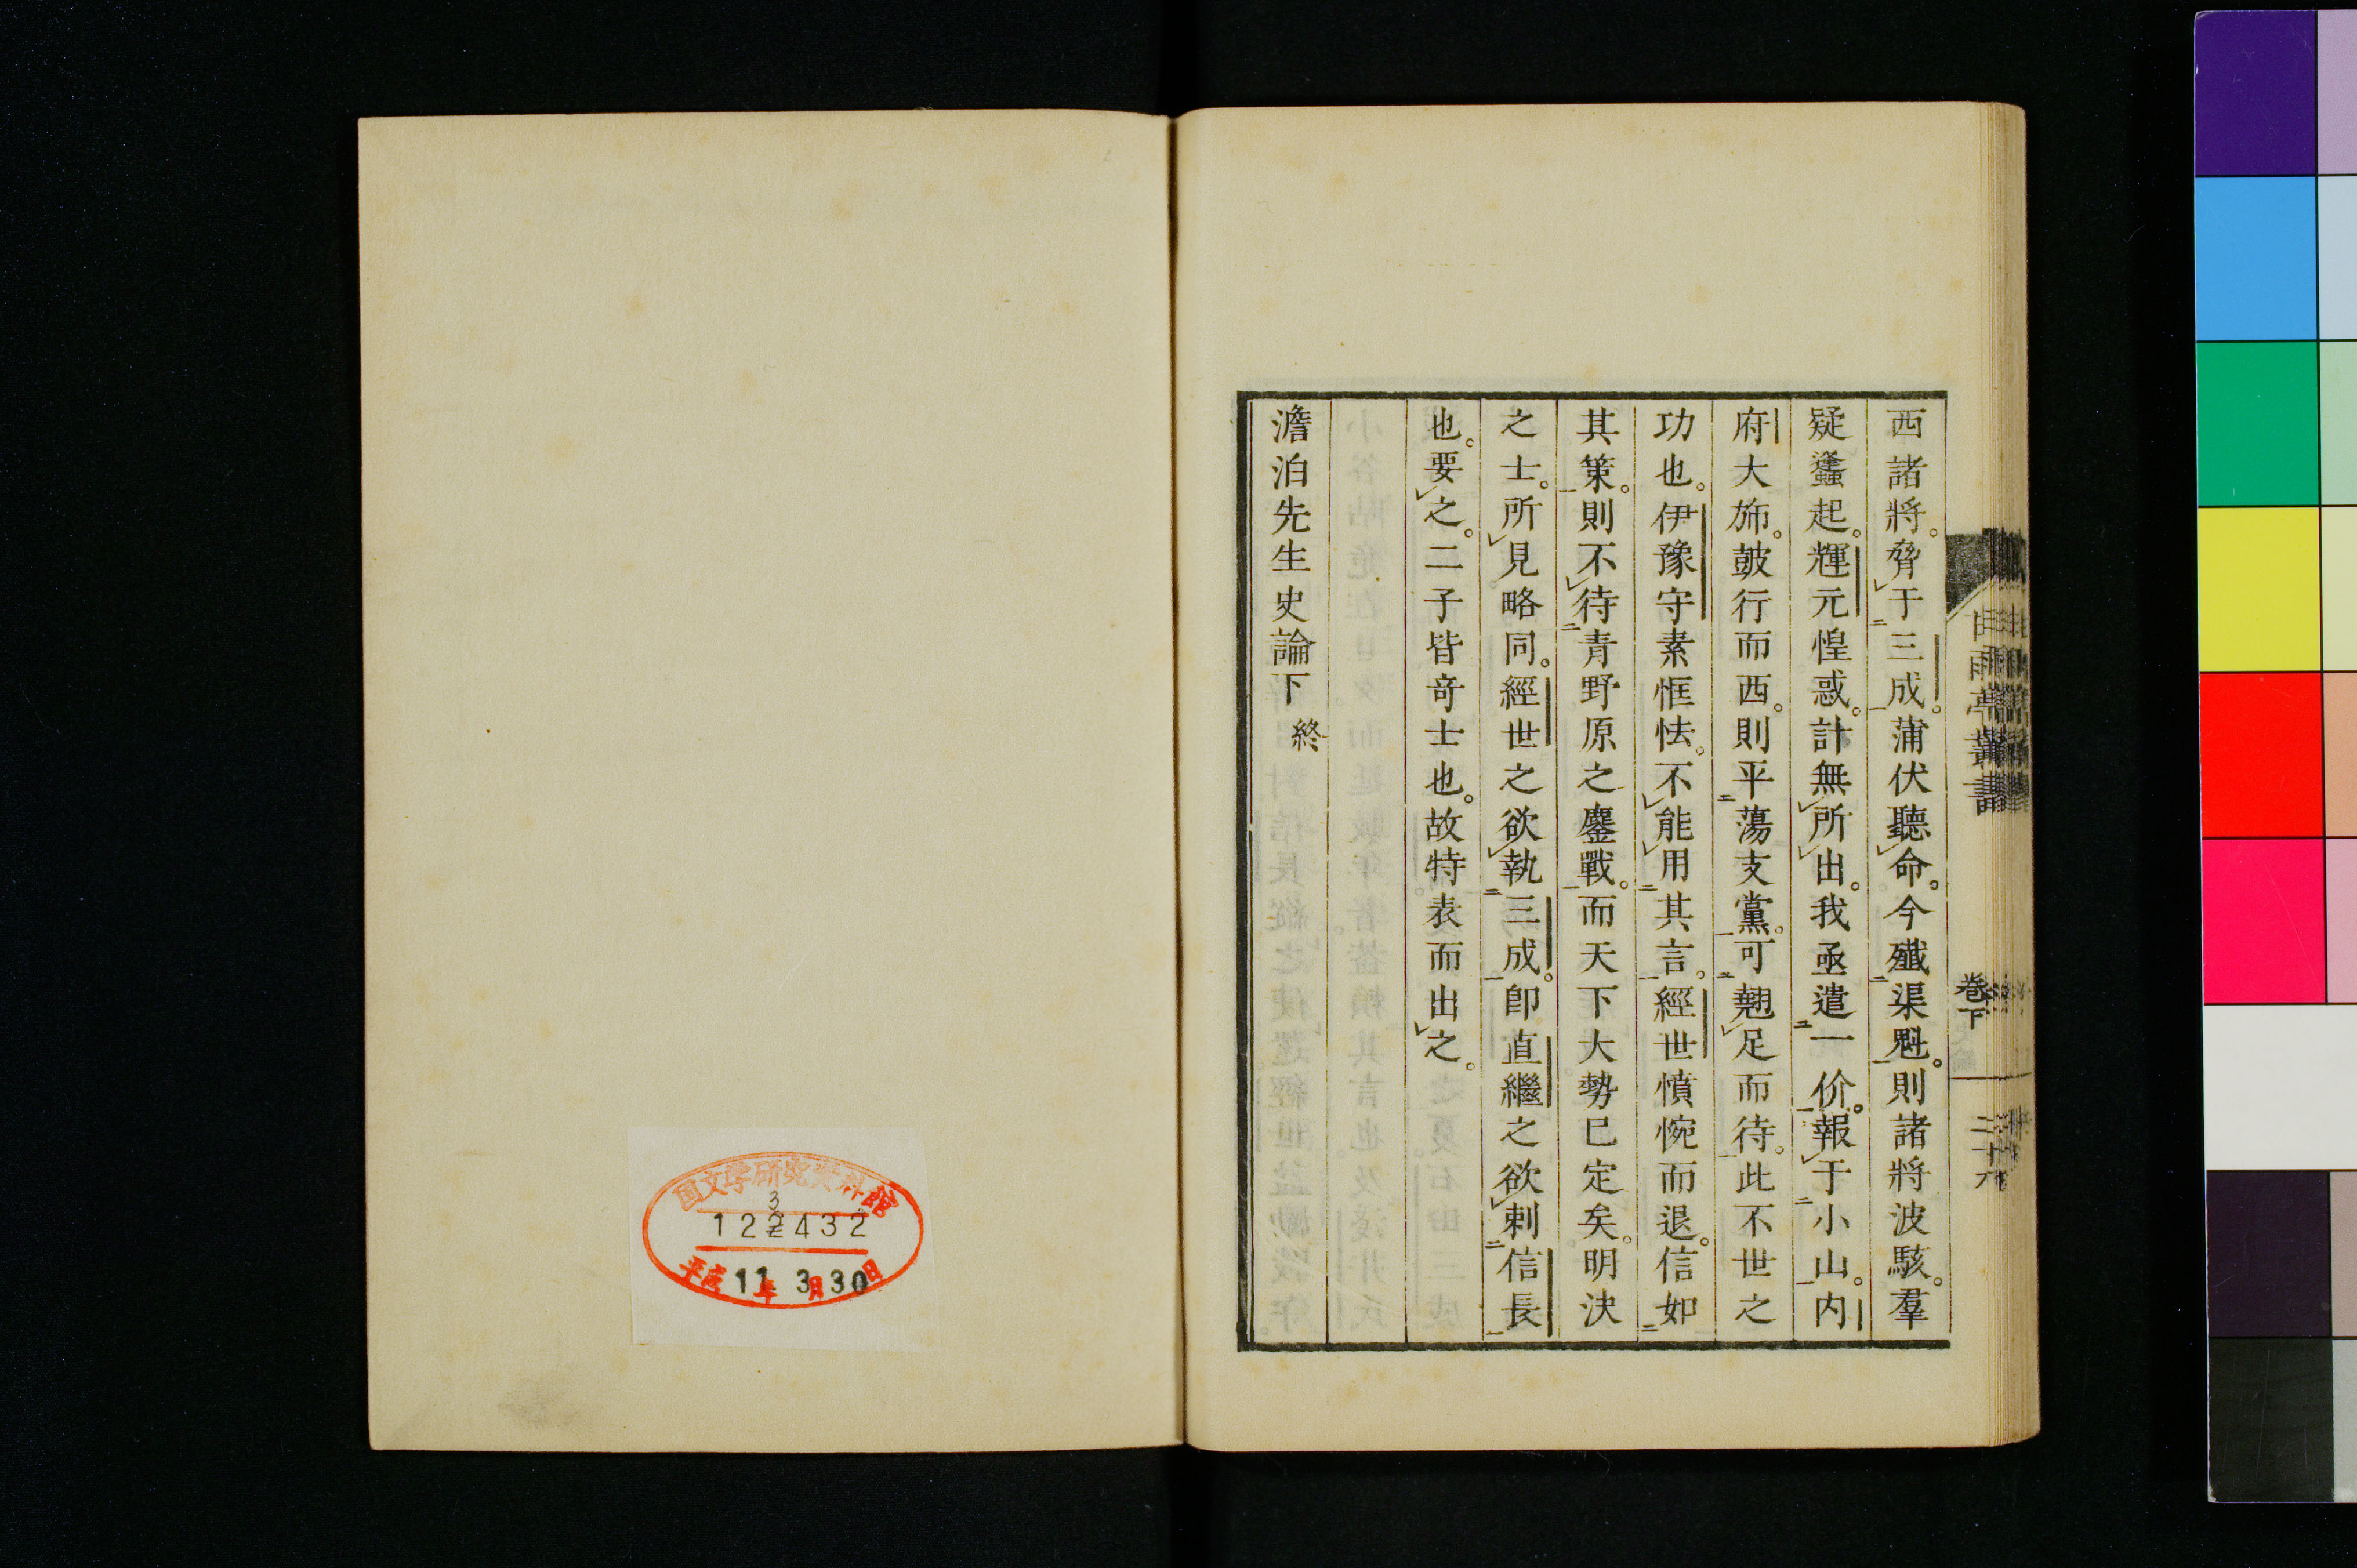 西諸將。脅于三成。蒲伏聽命。今殲渠魁。則諸將波駭。羣
疑蠭起。輝元惶惑。計無所出。我亟遣一价。報于小山。内
府大斾。鼓行而西。則平蕩支黨。可翹足而待。此不世之
功也。伊豫守素恇怯。不能用其言。經世憤惋而退。信如
其策。則不待青野原之鏖戰。而天下大勢已定矣。明決
之士。所見略同。經世之欲執三成。卽直繼之欲刺信長
也。要之。二子皆奇士也。故特表而出之。
澹泊先生史論下 終
甘雨亭叢書
卷下
二十九
国文学研究資料館
3
122432
平成11年3月30日